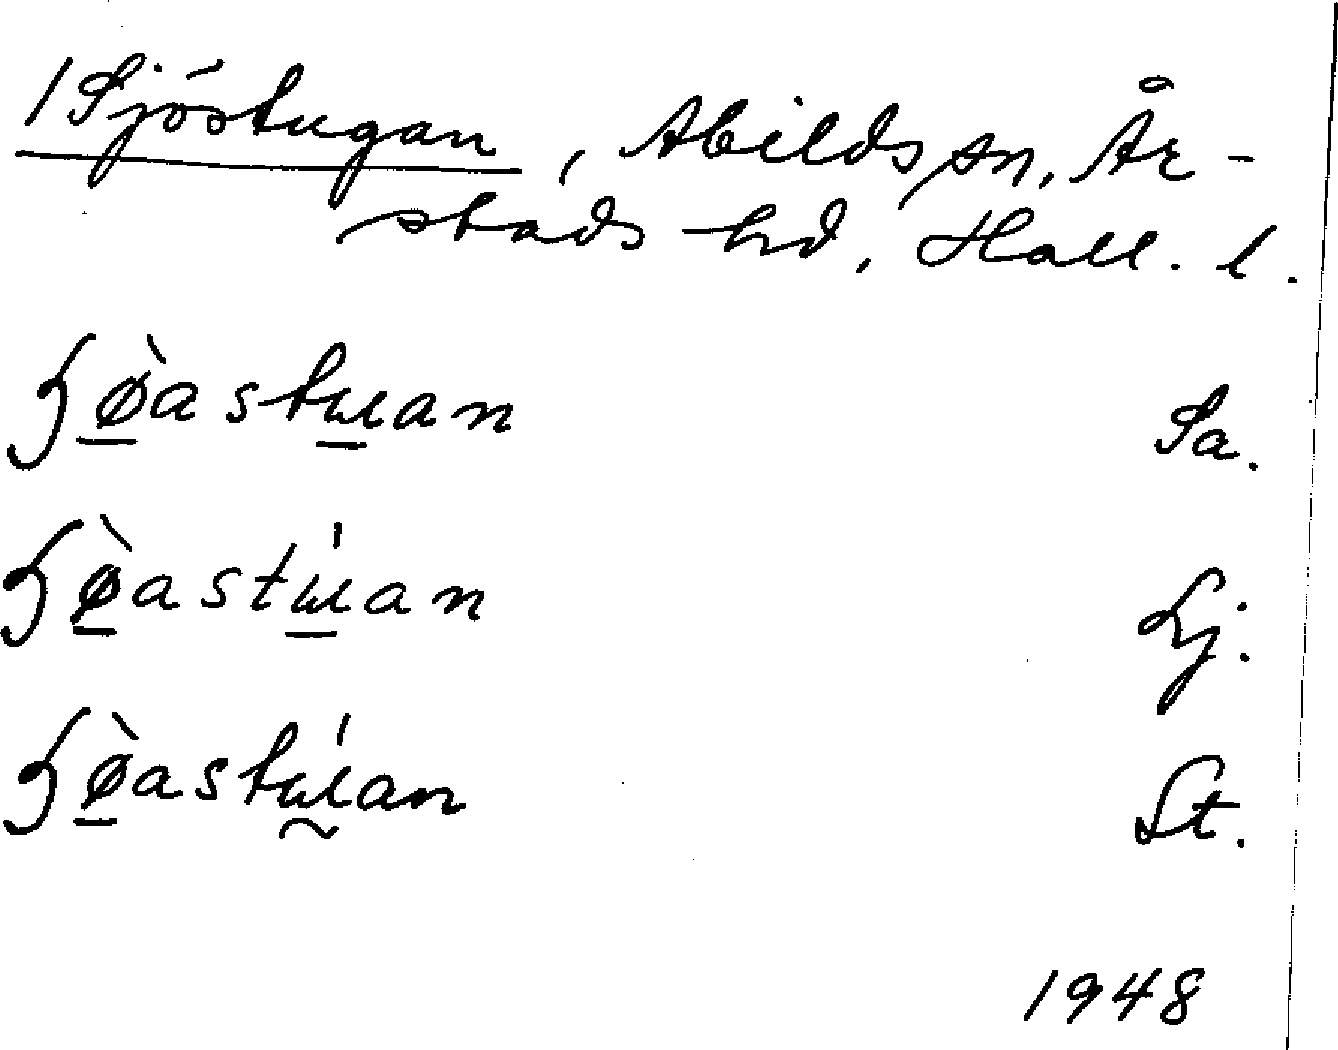 /Sjöstugan, Abilds sn, År-
stads hd, Hall. l.
ɧø̀astɯan Sa.
ɧø̀astɯ́an Lj.
ɧø̀astɯ́an St.
1948